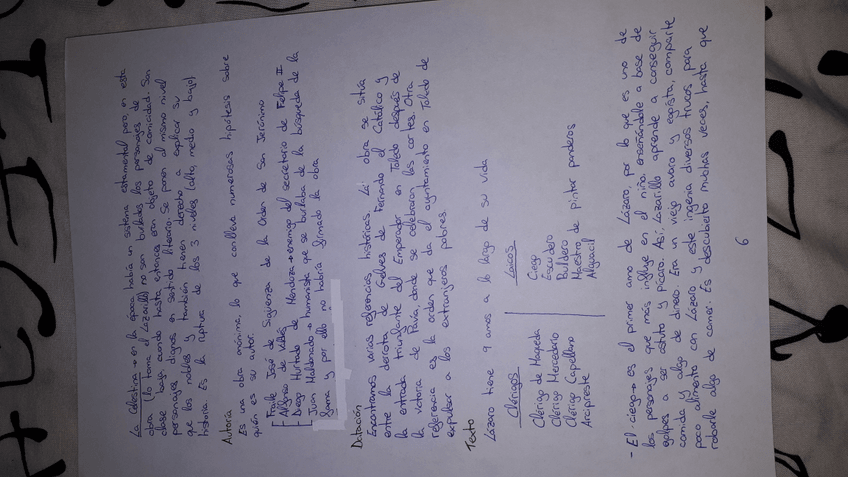 La Celestina → en la época había un sistema estamental pero, en esta
obra (lo toma el Lazarillo) no son burlados los personajes de
clase baja cuando hasta entonces eran objeto de comicidad. Son
personajes dignos en sentido literario. Se ponen al mismo nivel
que los nobles y también tienen derecho a explicar su
historia. Es la ruptura de los 3 niveles (alto, medio y bajo)
Autoría
Es una obra anónima, lo que conlleva numerosas hipótesis sobre
quién es su autor.
Fraile José de Sigüenza de la Orden de San Jerónimo
Alfonso de Valdés
Diego Hurtado de Mendoza → enemigo del secretario de Felipe II
Juan Maldonado → humanista que se burlaba de la búsqueda de la
fama y por ello no habría firmado la obra
Datación
Encontramos varias referencias históricas. La obra se sitúa
entre la derrota de Gelves de Fernando el Católico y
la entrada triunfante del Emperador en Toledo después de
la victoria de Pavía, donde se celebraron las cortes. Otra
referencia es la orden que da el ayuntamiento en Toledo de
expulsar a los extranjeros pobres.
Texto
Lázaro tiene 9 amos a lo largo de su vida
Clérigos
Clérigo de Maqueda
Clérigo Mercedario
Clérigo Capellano
Arcipreste
Laicos
Ciego
Escudero
Buldero
Maestro de pintar panderos
Alguacil
- El ciego → es el primer amo de Lázaro, por lo que es uno de
los personajes que más influye en el niño, enseñándole a base de
golpes a ser astuto y pícaro. Así, Lazarillo aprende a conseguir
comida y algo de dinero. Era un viejo avaro y egoísta, comparte
poco alimento con Lázaro y este ingenia diversos trucos para
robarle algo de comer. Es descubierto muchas veces, hasta que
6